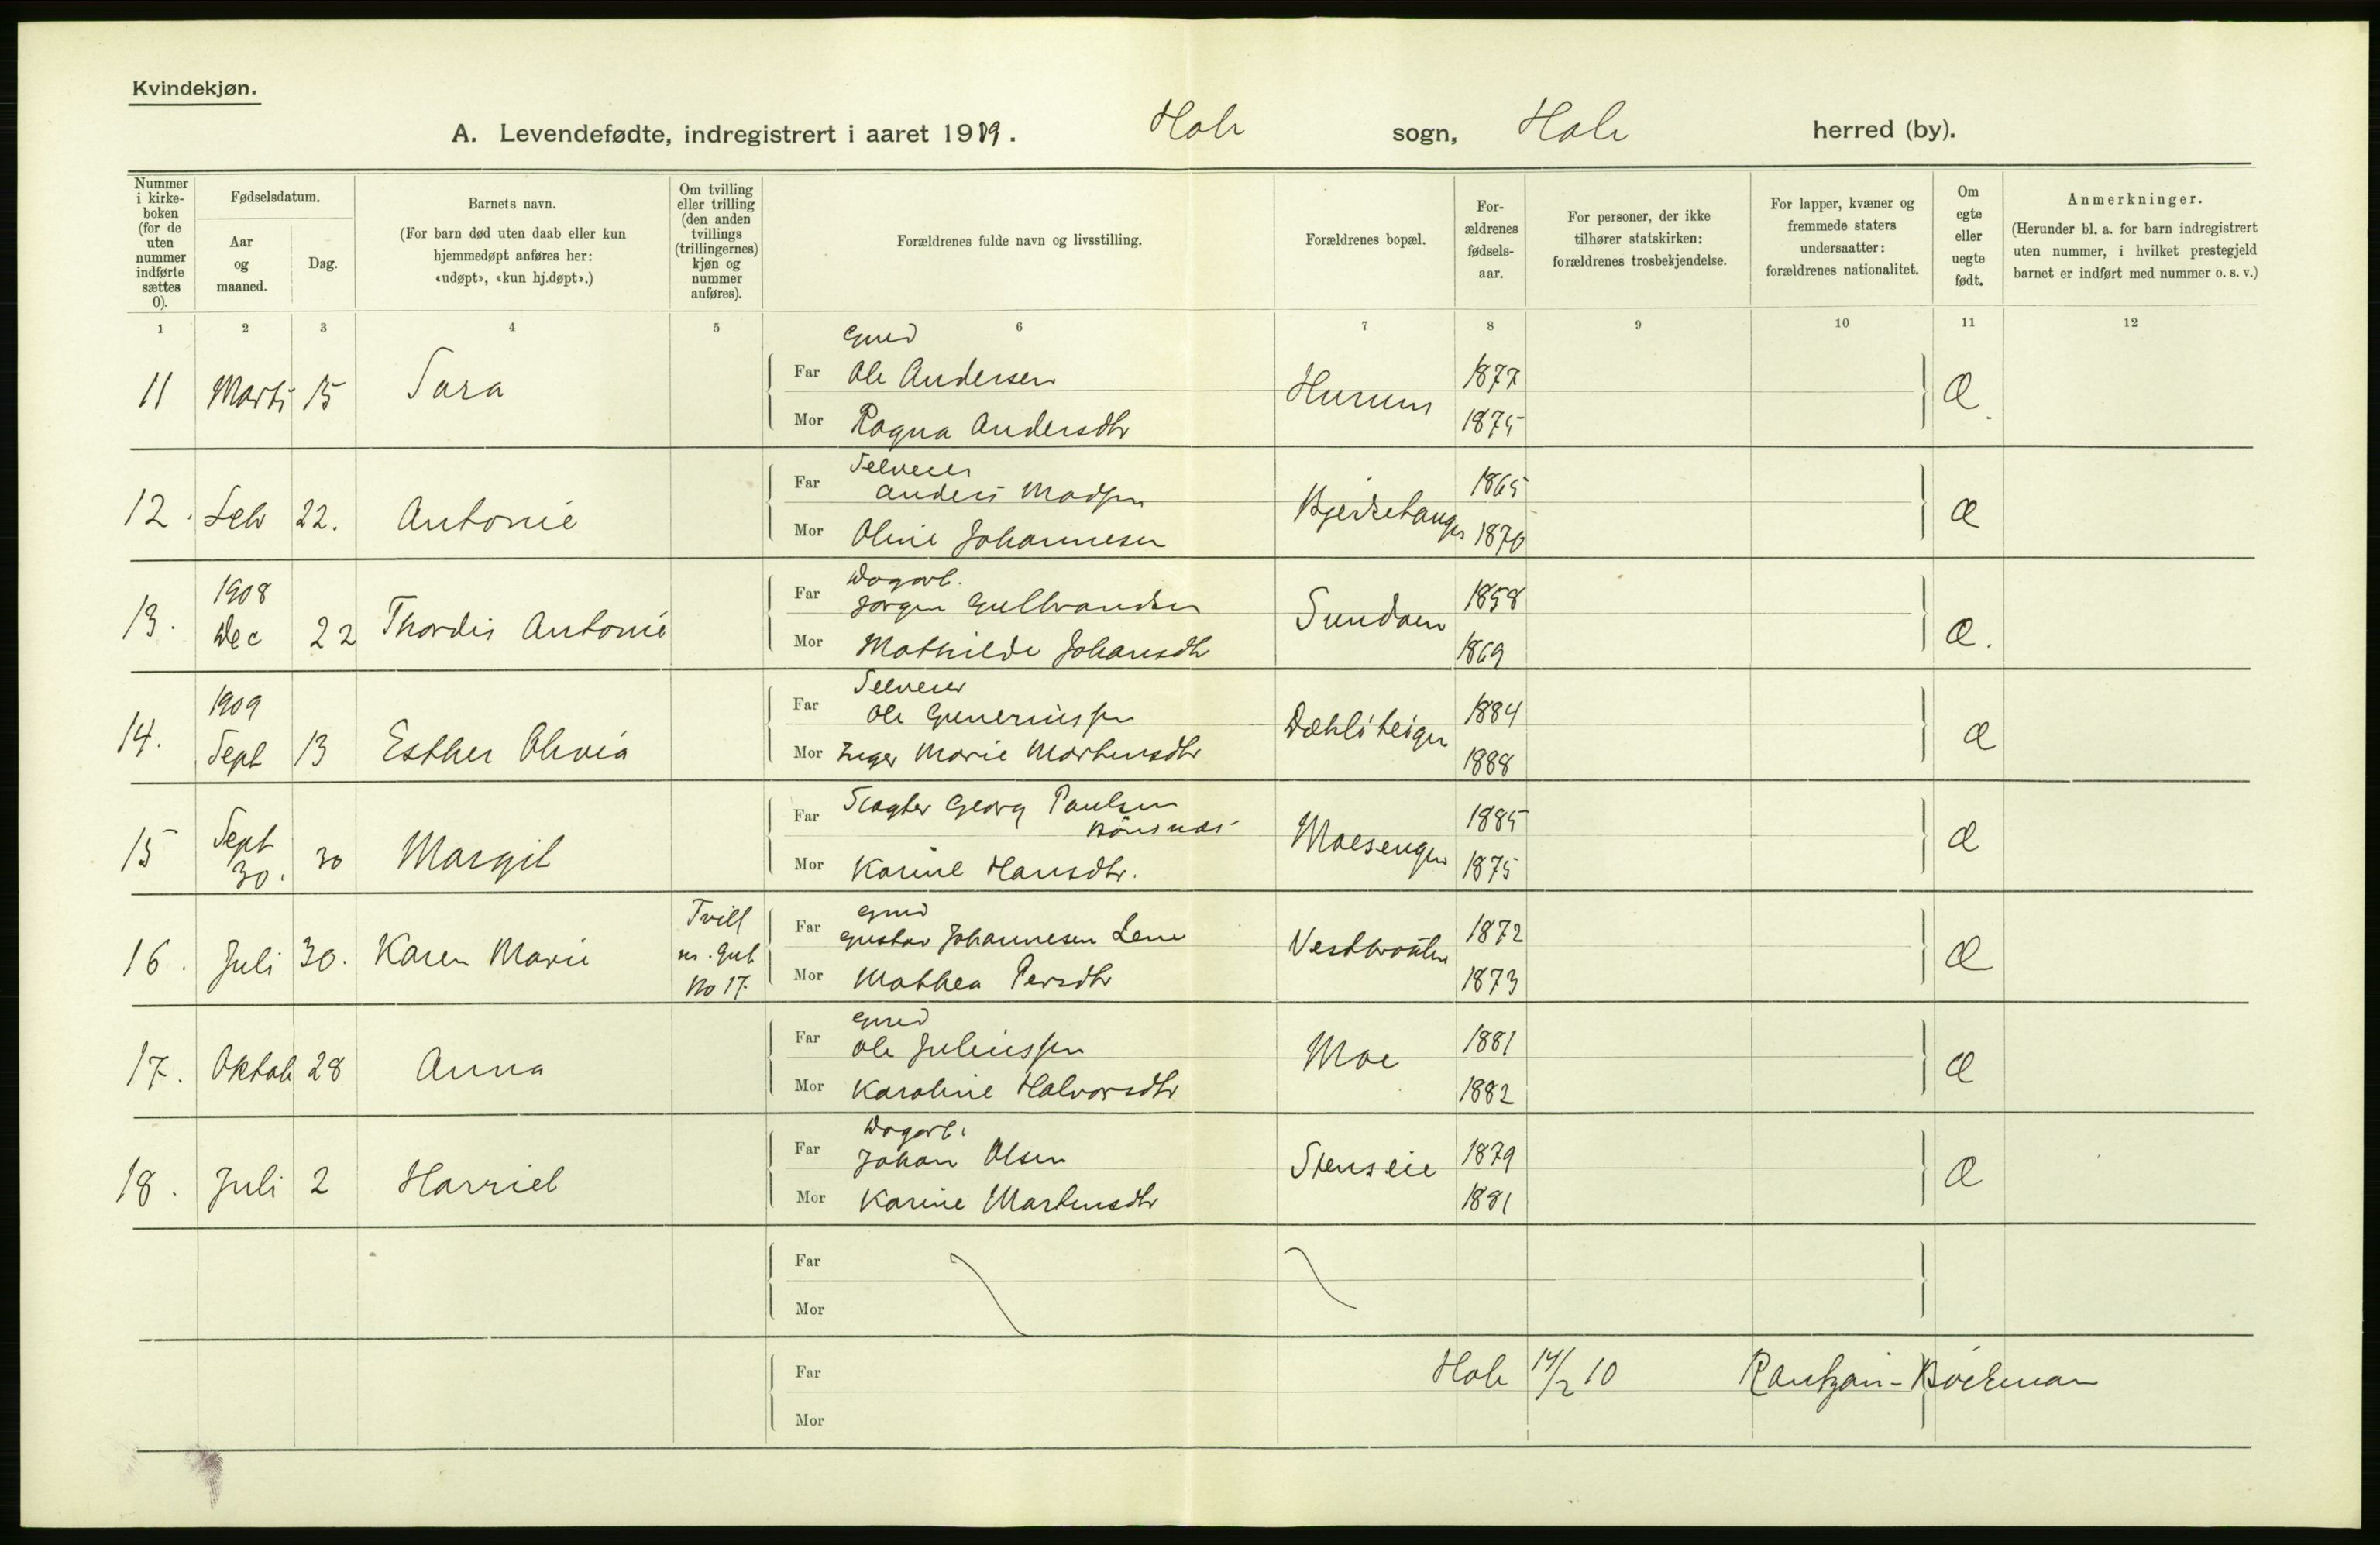 Kvindekjøn.
A. Levendefødte, indregistrert i aaret 1909. Hole sogn, Hole herred (by).
Nummer i kirkeboken (for de uten nummer indførte sættes 0).
Fødselsdatum.
Aar og maaned.
Dag.
Barnets navn.
(For barn død uten daab eller kun hjemmedøpt anføres her: «udøpt», «kun hj.døpt».)
Om tvilling eller trilling (den anden tvillings (trillingernes) kjøn og nummer anføres).
Forældrenes fulde navn og livsstilling.
Forældrenes bopæl.
Forældrenes fødselsaar.
For personer, der ikke tilhører statskirken: forældrenes trosbekjendelse.
For lapper, kvæner og fremmede staters undersaatter: forældrenes nationalitet.
Om egte eller uegte født.
Anmerkninger.
(Herunder bl. a. for barn indregistrert uten nummer, i hvilket prestegjeld barnet er indført med nummer o. s. v.)
1 2 3 4 5 6 7 8 9 10 11 12
Gmd
11 Marts 15 Sara Far Ole Andersen Hurum 1877 Æ.
Mor Ragna Andersdtr 1875
Selveier
12. Feb 22. Antonie Far Anders Madsen 1865 Æ
Mor Oline Johannesen 1870
1908 Dagarb.
13. Dec 22 Thordis Antonie Far Jørgen Gulbrandsen Sundøen 1858 Æ.
Mor Mathilde Johansdtr 1869
1909 Selveier
14. Sept 13 Esther Olivia Far Ole Guneriussen Dæhliteigen 1884 Æ
Mor Inger Marie Martinsdtr 1888
15 Sept 30. 30 Margit Far Slagter Georg Paulsen Bönsnæs Moesengen 1885 Æ
Mor Karine Hansdtr. 1875
Gmd
16. Juli 30. Karen Marie Tvill m. Gut No 17. Far Gustav Johannesen Lene 1872 Æ
Mor Mathea Persdtr 1873
Gmd
17. Oktob 28 Anna Far Ole Juliussen Moe 1881 Æ
Mor Karoline Halvorsdtr 1882
Dagarb.
18. Juli 2 Harriet Far Johan Olsen Stenseie 1879 Æ
Mor Karine Martinsdtr 1881
Far
Mor
Far
Hole 14/2 10 Rantzau-Böckman
Mor